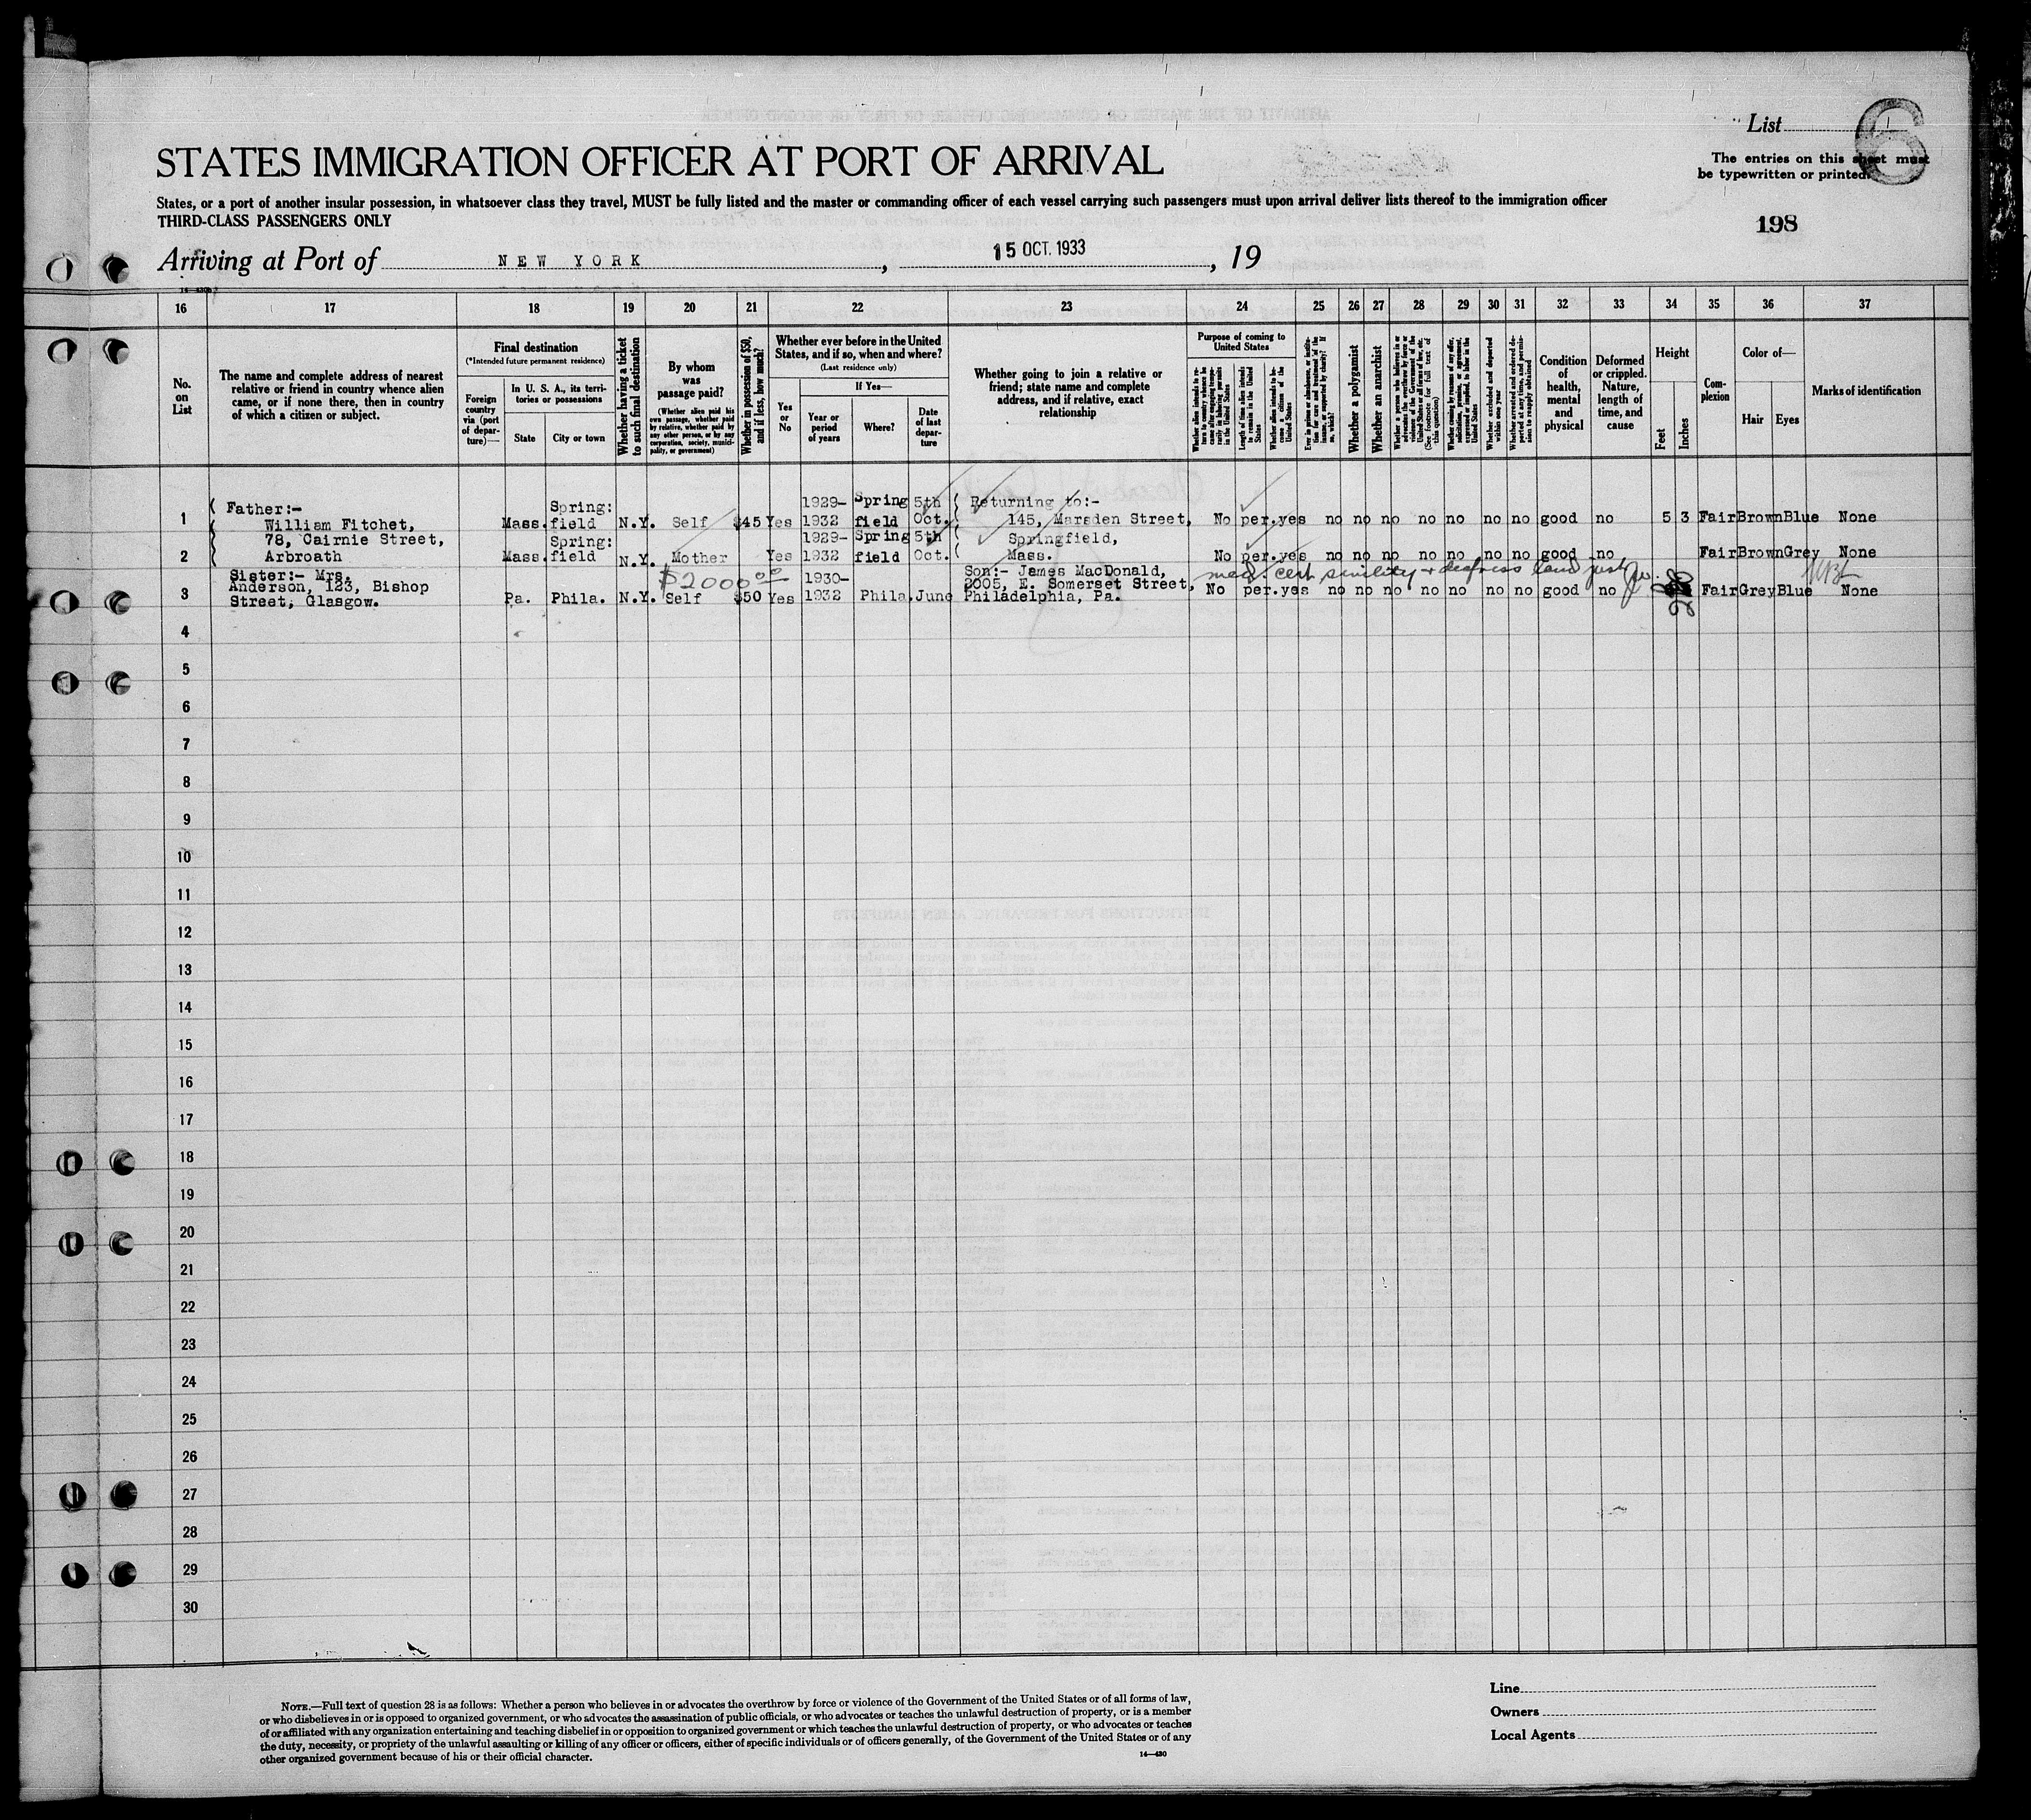 List 6
STATES IMMIGRATION OFFICER AT PORT OF ARRIVAL
The entries on this sheet must
be typewritten or printed.
States, or a port of another insular possession, in whatsoever class they travel, MUST be fully listed and the master or commanding officer of each vessel carrying such passengers must upon arrival deliver lists thereof to the immigration officer
THIRD-CLASS PASSENGERS ONLY
198
Arriving at Port of NEW YORK, 15 OCT. 1933, 19
16 17 18 19 20 21 22 23 24 25 26 27 28 29 30 31 32 33 34 35 36 37
No. on List
The name and complete address of nearest
relative or friend in country whence alien
came, or if none there, then in country
of which a citizen or subject.
Final destination
(*Intended future permanent residence)
Foreign country via (port of departure)—
In U. S. A., its territories or possessions
State
City or town
Whether having a ticket to such final destination
By whom was passage paid?
(Whether alien paid his own passage, whether paid by relative, whether paid by any other person, or by any corporation, society, municipality, or government)
Whether in possession of $50, and if less, how much?
Whether ever before in the United
States, and if so, when and where?
(Last residence only)
Yes or No
If Yes—
Year or period of years
Where?
Date of last departure
Whether going to join a relative or
friend; state name and complete
address, and if relative, exact
relationship
Purpose of coming to United States
Length of time alien intends to remain in the United States
Whether alien intends to become a citizen of the United States
Whether a polygamist
Whether an anarchist
(See footnote for full text of this question)
Whether excluded and deported within one year
Condition of health, mental and physical
Deformed or crippled. Nature, length of time, and cause
Height
Feet
Inches
Complexion
Color of—
Hair
Eyes
Marks of identification
1 Father:- William Fitchet, Mass. Spring: field N.Y. Self $45 Yes 1929- 1932 Spring field 5th Oct. Returning to:- 145, Marsden Street, No per. yes no no no no no no no good no 5 3 Fair Brown Blue None
2 78, Cairnie Street, Arbroath Mass. Spring: field N.Y. Mother Yes 1929- 1932 Spring field 5th Oct. Springfield, Mass. No per. yes no no no no no no no good no Fair Brown Grey None
$2000.00 med. cert senility + deafness land
3 Sister:- Mrs. Anderson, 123, Bishop Street, Glasgow. Pa. Phila. N.Y. Self $50 Yes 1930- 1932 Phila. June Son:- James MacDonald, 2005, E. Somerset Street, Philadelphia, Pa. No per. yes no no no no no no no good no Fair Grey Blue None
4
5
6
7
8
9
10
11
12
13
14
15
16
17
18
19
20
21
22
23
24
25
26
27
28
29
30
NOTE.—Full text of question 28 is as follows: Whether a person who believes in or advocates the overthrow by force or violence of the Government of the United States or of all forms of law,
or who disbelieves in or is opposed to organized government, or who advocates the assassination of public officials, or who advocates or teaches the unlawful destruction of property, or is a member
of or affiliated with any organization entertaining and teaching disbelief in or opposition to organized government or which teaches the unlawful destruction of property, or who advocates or teaches
the duty, necessity, or propriety of the unlawful assaulting or killing of any officer or officers, either of specific individuals or of officers generally, of the Government of the United States or of any
other organized government because of his or their official character.
14—430
Line
Owners
Local Agents